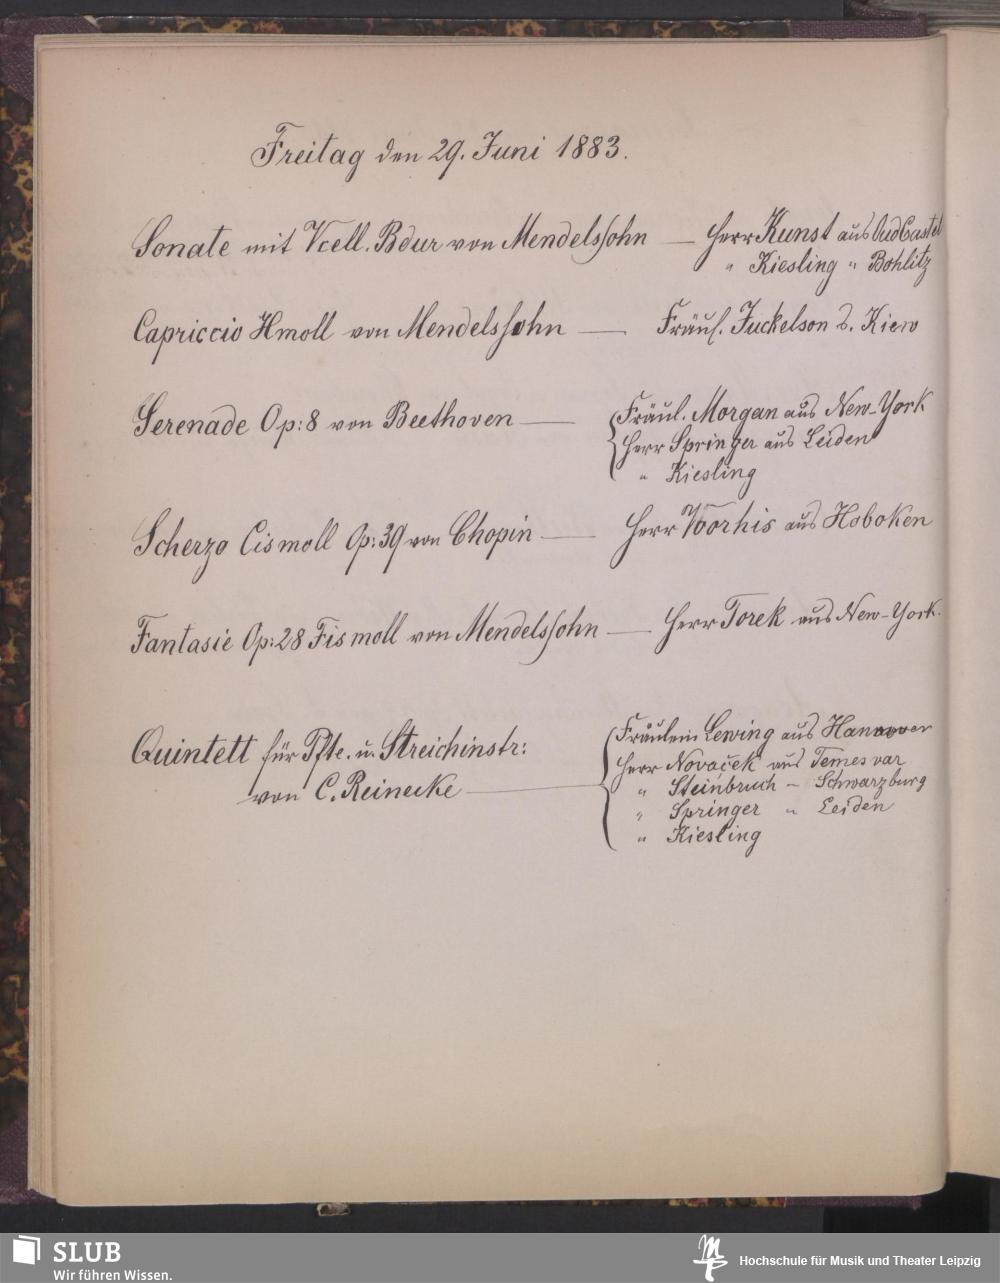 Freitag den 29. Juni 1883.
Sonate mit Vcell. Bdur von Mendelssohn — Herr Kunst aus OudCastel
" Kiesling " Bohlitz
Capriccio Hmoll von Mendelssohn — Fräul. Juckelson d. Kiew
Serenade Op: 8 von Beethoven — Fräul. Morgan aus New-York
Herr Springer aus Leiden
" Kiesling
Scherzo Cismoll Op: 39 von Chopin — Herr Voorhis aus Hoboken
Fantasie Op: 28 Fismoll von Mendelssohn — Herr Torek aus New-York.
Quintett für Pfte. u. Streichinstr:
von C. Reinecke —
Fräulein Lewing aus Hannover
Herr Novaček aus Temesvar
" Steinbruch – Schwarzburg
" Springer " Leiden
" Kiesling
SLUB
Wir führen Wissen.
Hochschule für Musik und Theater Leipzig